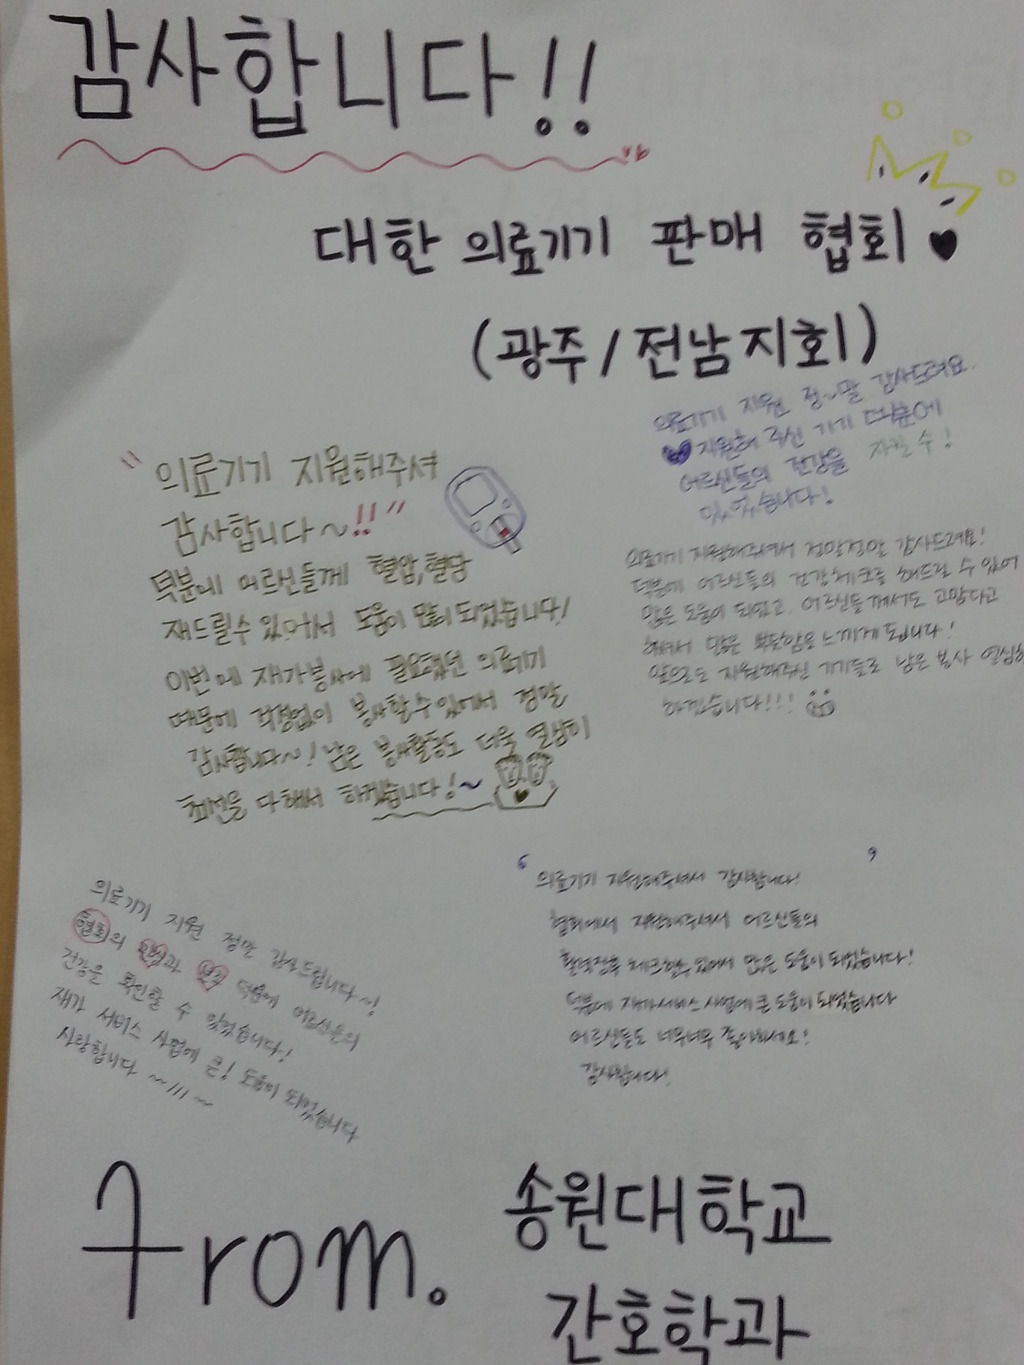 감사합니다!!
대한 의료기기 판매 협회
(광주/전남지회)
의료기기 지원 정~말 감사드려요.
지원해 주신 기기 덕분에
어르신들의 건강을 지킬 수!
있었습니다!
"의료기기 지원해주셔
감사합니다~!!"
덕분에 어르신들께 혈압,혈당
재드릴수 있어서 도움이 많이 되었습니다!
이번에 재가봉사에 필요했던 의료기기
때문에 걱정없이 봉사할수있어서 정말
감사합니다~! 남은 봉사활동도 더욱 열심히
최선을 다해서 하겠습니다!~
의료기기 지원해주셔서 정말정말 감사드려요!
덕분에 어르신들의 건강체크를 해드릴 수 있어
많은 도움이 되었고, 어르신들께서도 고맙다고
해주셔서 많은 뿌듯함을 느끼게 됩니다!
앞으로도 지원해주신 기기들로 남은 봉사 열심히
하겠습니다!!!
의료기기 지원 정말 감사드립니다~!
협회의 덕분에 어르신들의
건강을 확인할 수 있었습니다!
재가 서비스 사업에 큰! 도움이 되었습니다
사랑합니다~!!!~
'의료기기 지원해주셔서 감사합니다!'
협회에서 지원해주셔서 어르신들의
활력징후 체크할수 있어서 많은 도움이 되었습니다!
덕분에 재가서비스 사업에 큰 도움이 되었습니다
어르신들도 너무너무 좋아하세요!
감사합니다!
from.
송원대학교
간호학과